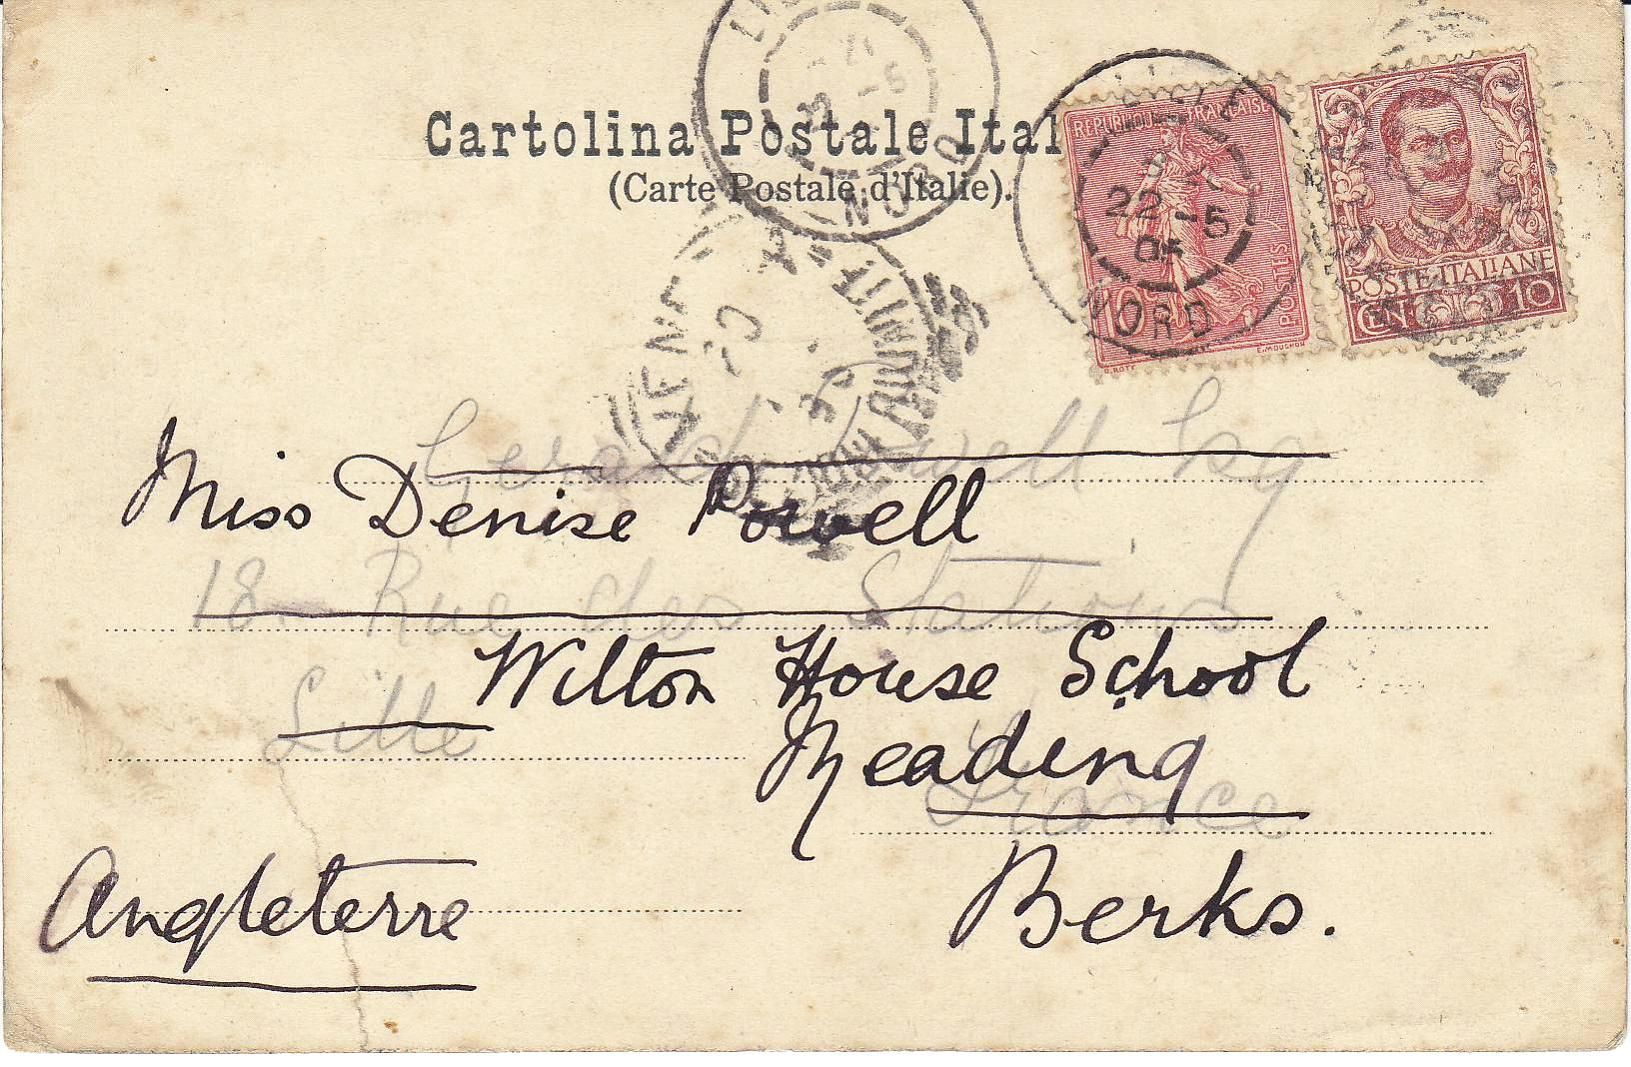 Cartolina Postale Ital
(Carte Postale d'Italie).
REPUBLIQUE FRANÇAISE
POSTES
10
O. ROTY
E. MOUCHON
22 - 5
05
NORD
NORD
POSTE·ITALIANE
CEN. 10
VENE
Gerald Powell Esq
Miss Denise Powell
18 Rue des Stations
Wilton House School
Lille
Reading
France
Angleterre
Berks.